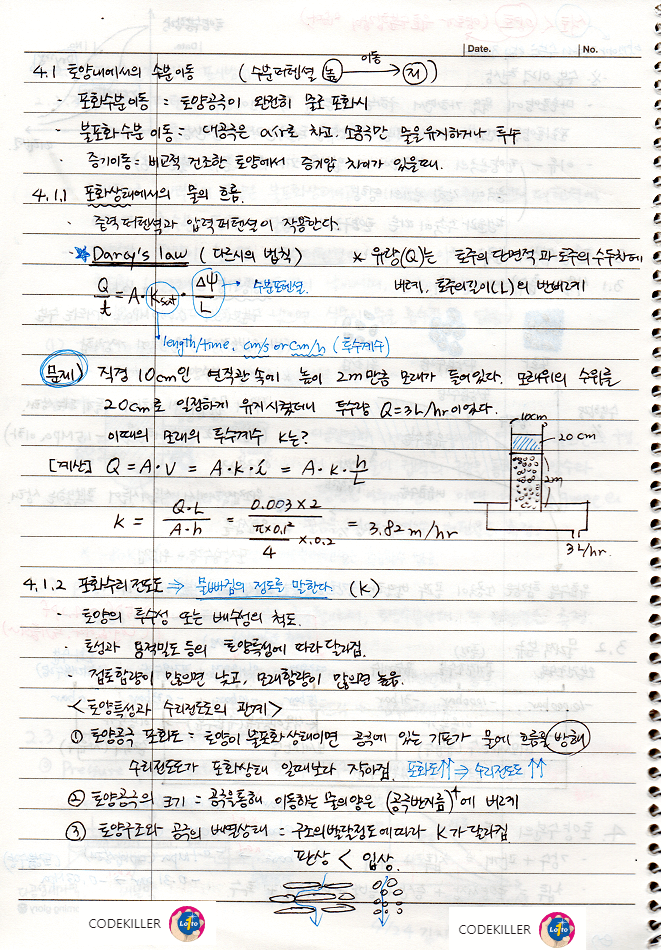 Date.
No.
4.1 토양내에서의 수분이동 (수분퍼텐셜 높 이동 저)
- 포화수분이동 = 토양공극이 완전히 물로 포화시
- 불포화수분 이동 = 대공극은 air로 차고, 소공극만 물을유지하거나 투수
- 증기이동 = 비교적 건조한 토양에서 증기압 차이가 있을때.
4.1.1 포화상태에서의 물의 흐름.
- 중력퍼텐셜과 압력퍼텐셜이 작용한다.
* Darcy's law (다르시의 법칙) * 유량(Q)는 토주의 단면적과 토주의 수두차에
비례, 토주의길이(L)의 반비례
Q/t = A · Ksat · ΔΨ/L → 수분포텐셜.
length/time. cm/s or cm/h (투수계수)
문제) 직경 10cm인 연직관 속에 높이 2m만큼 모래가 들어있다. 모래위의 수위를
20cm로 일정하게 유지시켰더니 투수량 Q=3L/hr이었다.
이때의 모래의 투수계수 K는?
[계산] Q = A·V = A·K·i = A·K·h/L
K = Q·L / A·h = 0.003×2 / π×0.1²/4 ×0.2 = 3.82 m/hr
10cm
20cm
2m
3L/hr.
4.1.2 포화수리전도도 ⇒ 물빠짐의 정도를 말한다. (K)
- 토양의 투수성 또는 배수성의 척도.
- 토성과 용적밀도 등의 토양특성에 따라 달라짐.
- 점토함량이 많으면 낮고, 모래함량이 많으면 높음.
<토양특성과 수리전도도의 관계>
① 토양공극 포화도 = 토양이 불포화상태이면 공극에 있는 기포가 물에 흐름을 방해
수리전도도가 포화상태 일때보다 작아짐. 포화도↑↑ ⇒ 수리전도도 ↑↑
② 토양공극의 크기 = 공극을통해 이동하는 물의양은 (공극반지름)⁴에 비례
③ 토양구조와 공극의 배열상태 = 구조의발달정도에따라 K가 달라짐.
판상 < 입상.
CODEKILLER Lotto CODEKILLER Lotto